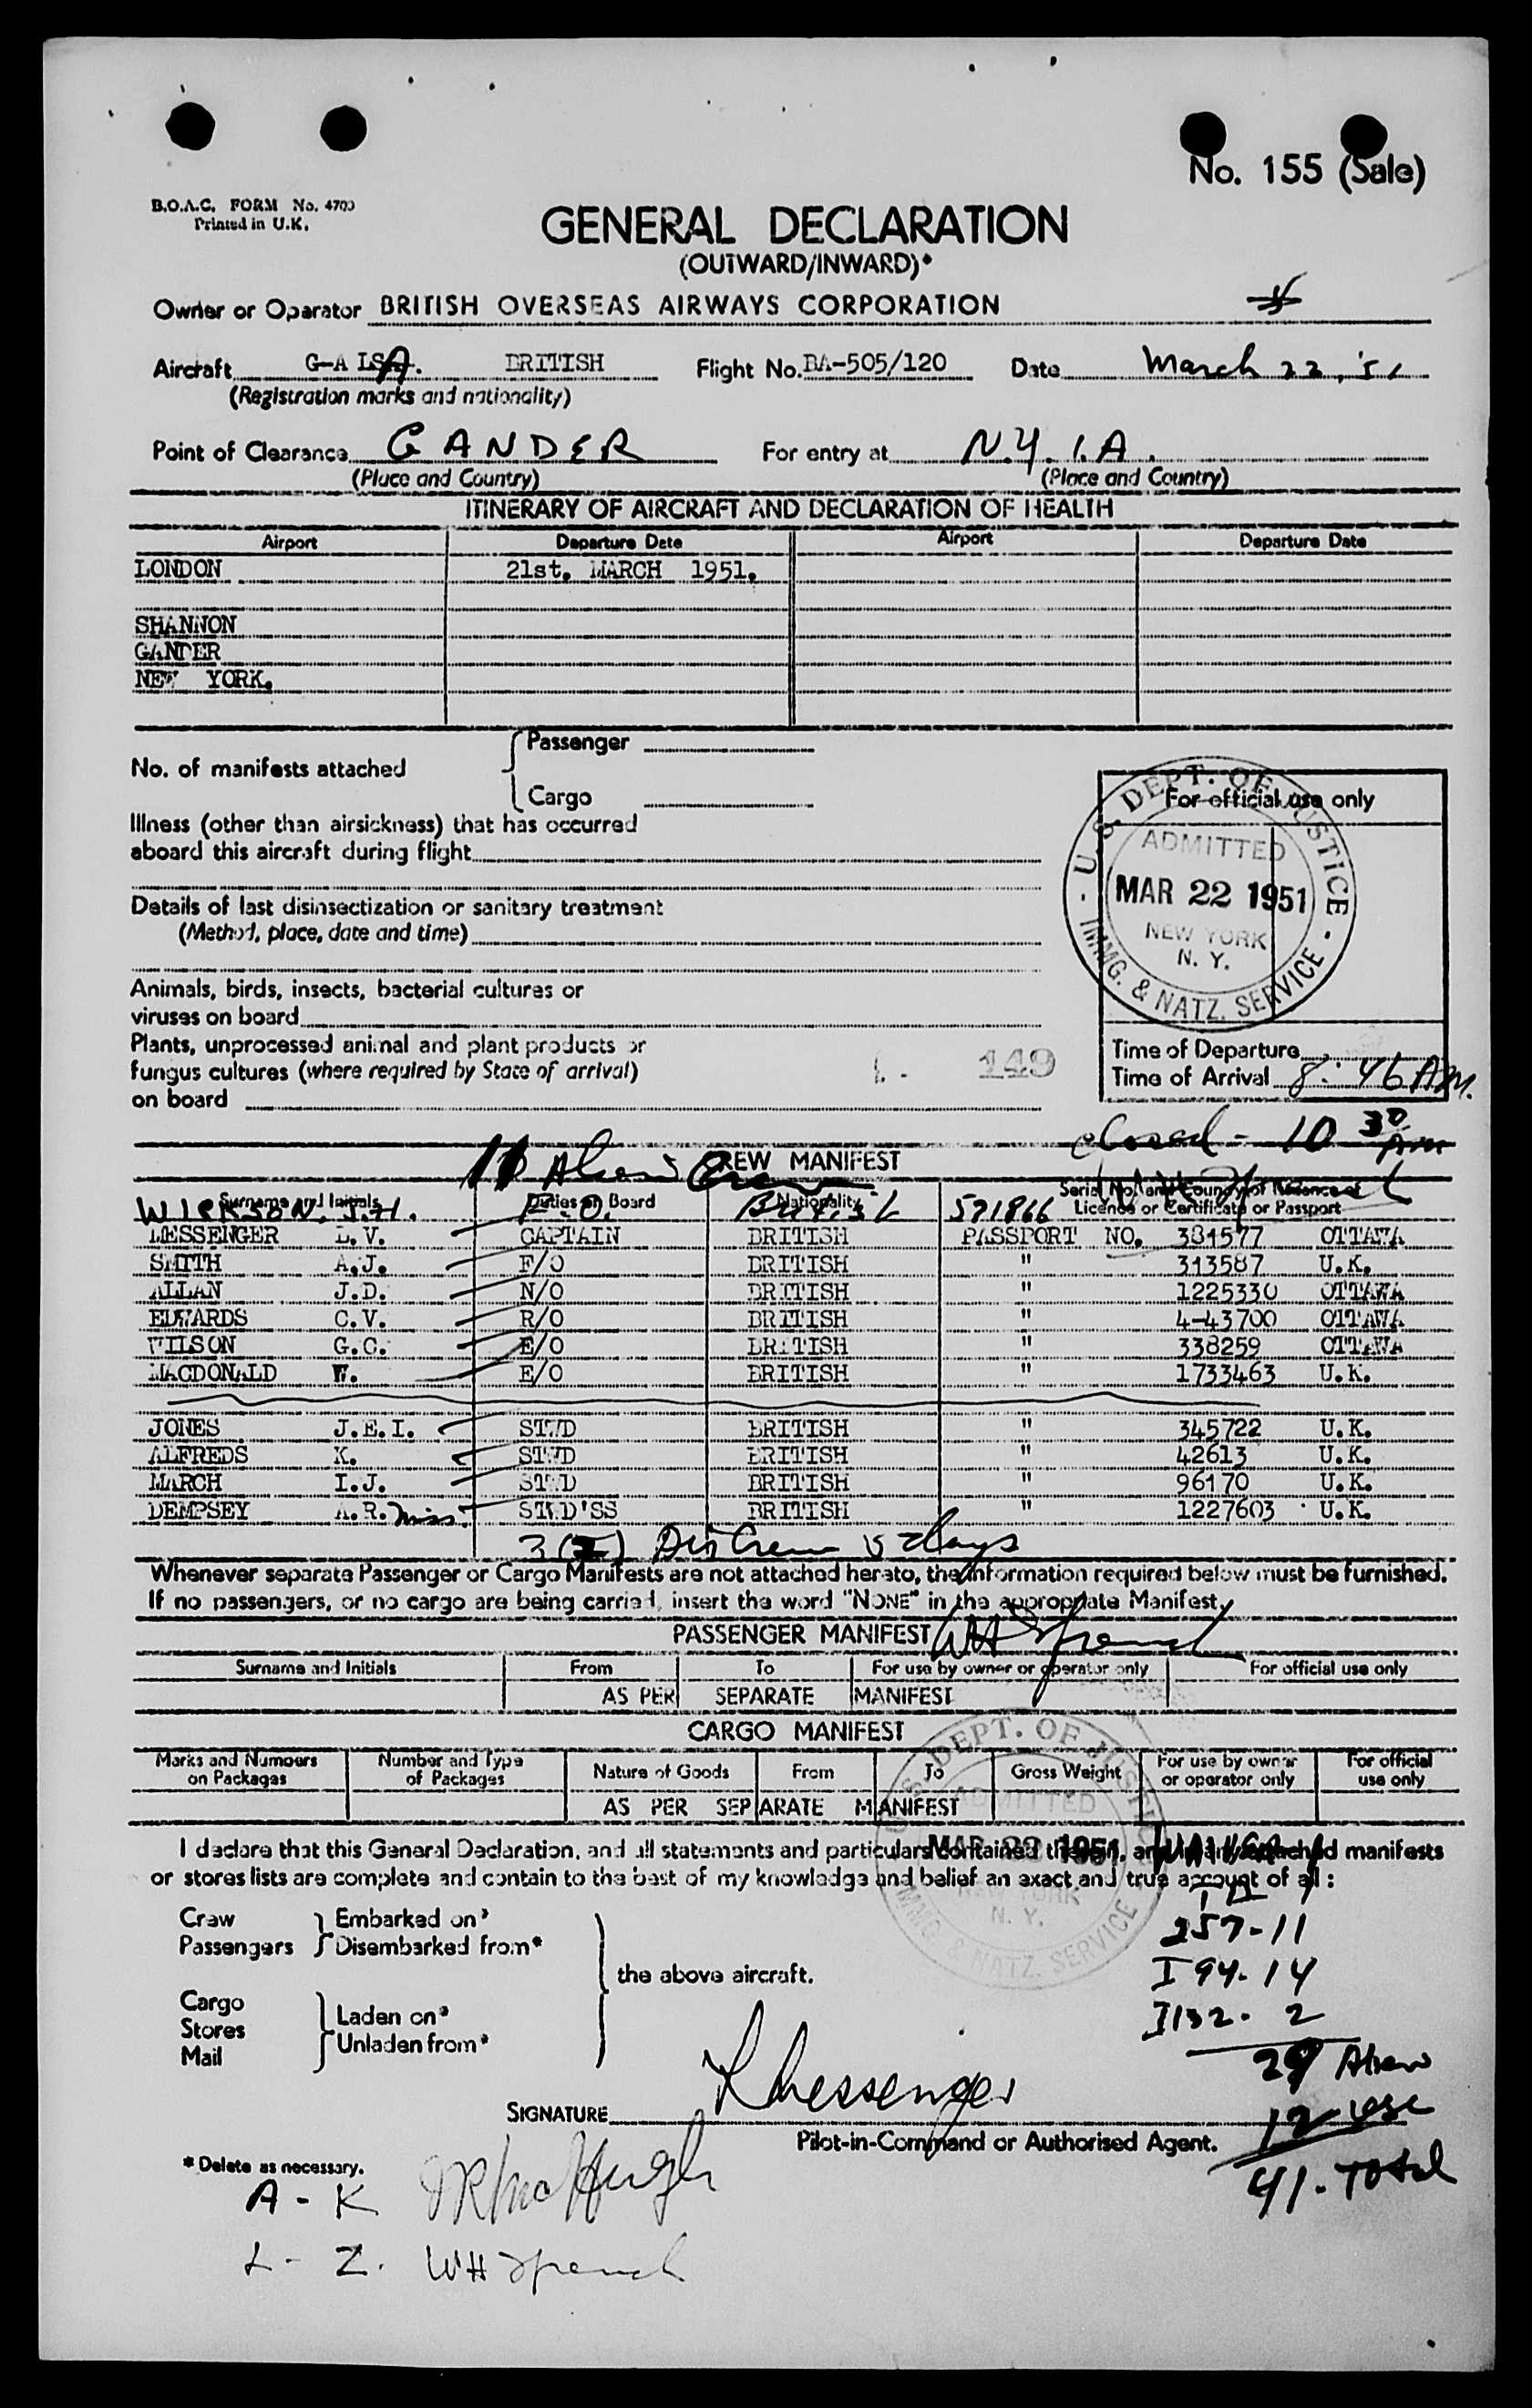 No. 155 (Sale)
B.O.A.C. FORM No. 4700
Printed in U.K.
GENERAL DECLARATION
(OUTWARD/INWARD)*
Owner or Operator BRITISH OVERSEAS AIRWAYS CORPORATION
Aircraft G-A LSA. BRITISH Flight No. BA-505/120 Date March 22, '51
(Registration marks and nationality)
Point of Clearance GANDER For entry at N.Y.I.A.
(Place and Country) (Place and Country)
ITINERARY OF AIRCRAFT AND DECLARATION OF HEALTH
Airport Departure Date Airport Departure Date
LONDON 21st. MARCH 1951.
SHANNON
GANDER
NEW YORK.
No. of manifests attached
Passenger
Cargo
Illness (other than airsickness) that has occurred
aboard this aircraft during flight
Details of last disinsectization or sanitary treatment
(Method, place, date and time)
Animals, birds, insects, bacterial cultures or
viruses on board
Plants, unprocessed animal and plant products or
fungus cultures (where required by State of arrival)
on board
149
For official use only
U.S. DEPT. OF JUSTICE - IMMG. & NATZ. SERVICE
ADMITTED
MAR 22 1951
NEW YORK
N. Y.
Time of Departure
Time of Arrival 8:46 AM.
closed - 10 30 AM
11 Alien Crew
CREW MANIFEST
Surname and Initials Duties on Board Nationality Serial No. and Country of Issuance of
Licence or Certificate or Passport
J.H. British 521866
MESSENGER L.V. CAPTAIN BRITISH PASSPORT NO. 381577 OTTAWA
SMITH A.J. F/O BRITISH " 313587 U.K.
ALLAN J.D. N/O BRITISH " 1225330 OTTAWA
EDWARDS C.V. R/O BRITISH " 4-43700 OTTAWA
WILSON G.C. E/O BRITISH " 338259 OTTAWA
MACDONALD W. E/O BRITISH " 1733463 U.K.
JONES J.E.I. STWD BRITISH " 345722 U.K.
ALFREDS K. STWD BRITISH " 42613 U.K.
MARCH I.J. STWD BRITISH " 96170 U.K.
DEMPSEY A.R. Miss. STWD'SS BRITISH " 1227603 U.K.
3 (5) Crew days
Whenever separate Passenger or Cargo Manifests are not attached hereto, the information required below must be furnished.
If no passengers, or no cargo are being carried, insert the word "NONE" in the appropriate Manifest.
PASSENGER MANIFEST
Surname and Initials From To For use by owner or operator only For official use only
AS PER SEPARATE MANIFEST
CARGO MANIFEST
Marks and Numbers on Packages Number and Type of Packages Nature of Goods From To Gross Weight For use by owner or operator only For official use only
AS PER SEPARATE MANIFEST
U.S. DEPT. OF JUSTICE IMMG. & NATZ. SERVICE
ADMITTED
MAR 22 1951
NEW YORK
N. Y.
I declare that this General Declaration, and all statements and particulars contained therein, and in any attached manifests
or stores lists are complete and contain to the best of my knowledge and belief an exact and true account of all:
Crew
Passengers
Embarked on*
Disembarked from*
the above aircraft.
Cargo
Stores
Mail
Laden on*
Unladen from*
257-11
I 94-14
I132- 2
29 Alien
12 USC
41. Total
SIGNATURE LMessenger
Pilot-in-Command or Authorised Agent.
* Delete as necessary.
A - K
L - Z. WH